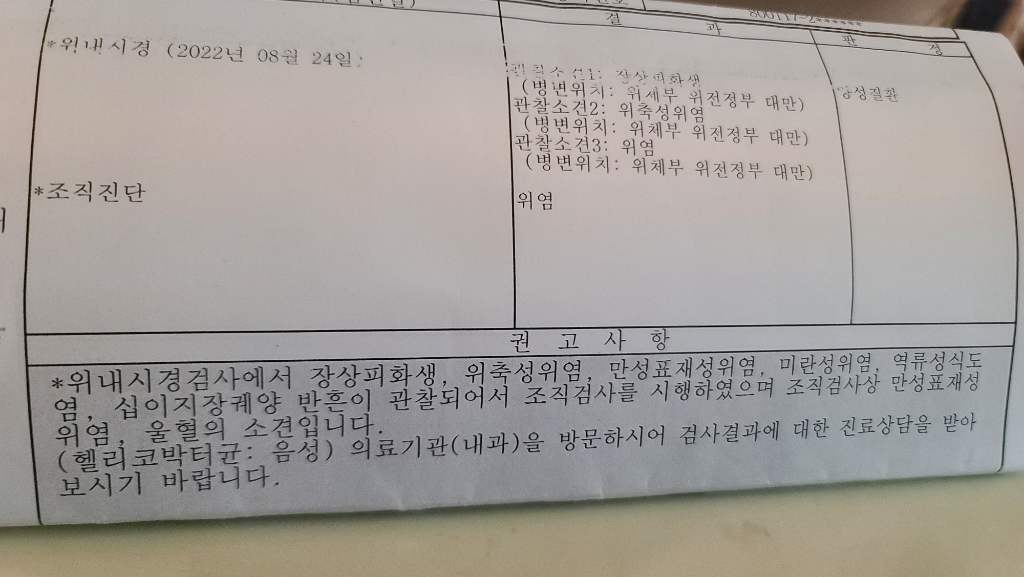 800117-2******
결 과
판 정
*위내시경 (2022년 08월 24일)
관찰소견1: 장상피화생
(병변위치: 위체부 위전정부 대만)
양성질환
관찰소견2: 위축성위염
(병변위치: 위체부 위전정부 대만)
관찰소견3: 위염
(병변위치: 위체부 위전정부 대만)
*조직진단
위염
권 고 사 항
*위내시경검사에서 장상피화생, 위축성위염, 만성표재성위염, 미란성위염, 역류성식도
염, 십이지장궤양 반흔이 관찰되어서 조직검사를 시행하였으며 조직검사상 만성표재성
위염, 울혈의 소견입니다.
(헬리코박터균: 음성) 의료기관(내과)을 방문하시어 검사결과에 대한 진료상담을 받아
보시기 바랍니다.